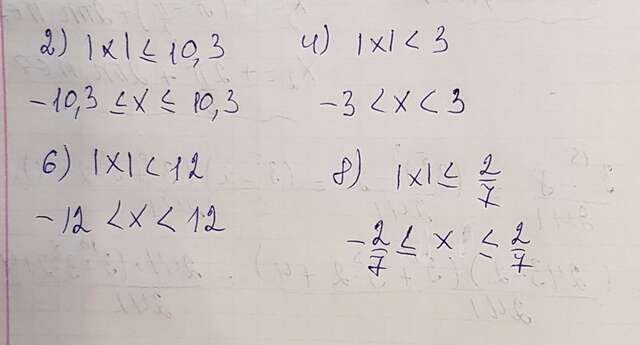 2) |x| ≤ 10,3
-10,3 ≤ x ≤ 10,3
4) |x| < 3
-3 < x < 3
6) |x| < 12
-12 < x < 12
8) |x| ≤ 2/7
-2/7 ≤ x ≤ 2/7